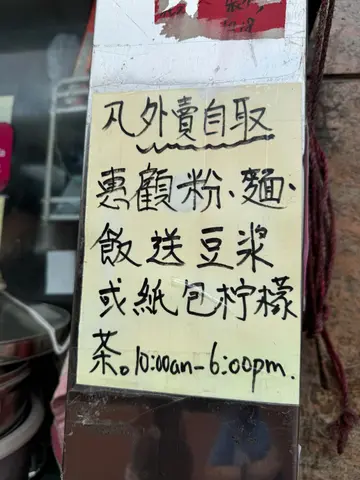 凡外賣自取
惠顧粉、麵、
飯送豆漿
或紙包柠檬
茶。10:00am-6:00pm.